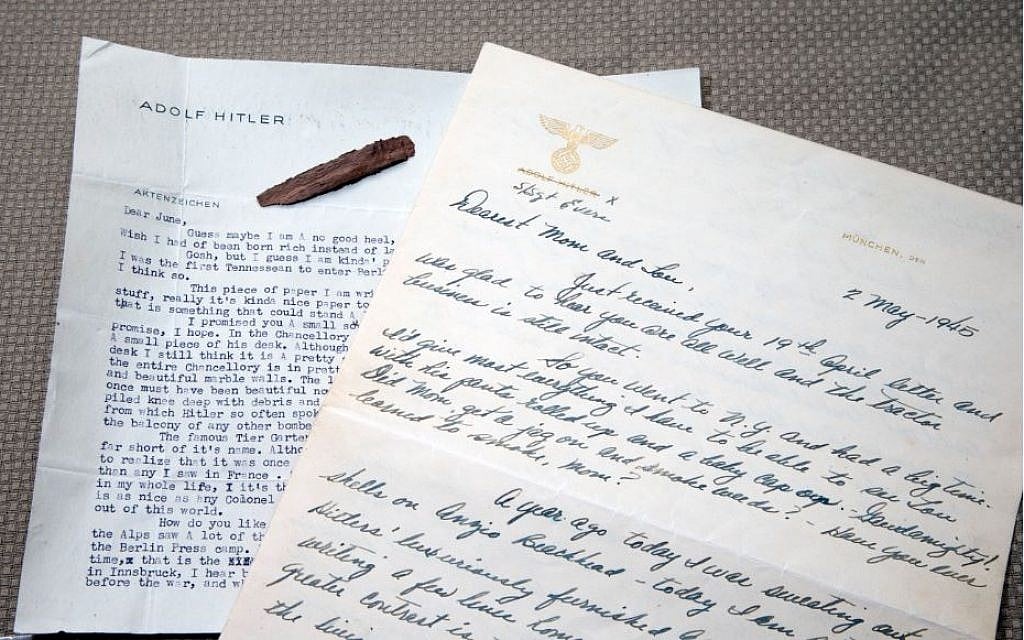 ADOLF HITLER
AKTENZEICHEN
Dear June,
Guess maybe I am A no good heel,
Wish I had of been born rich instead of
Gosh, but I guess I am kinda'
I was the first Tennessean to enter
I think so.
This piece of paper I am
stuff, really it's kinda nice paper to
that is something that could stand A
I promised you A small
promise, I hope. In the Chancellory
A small piece of his desk. Although
desk I still think it is A pretty
the entire Chancellory is in
and beautiful marble walls. The
once must have been beautiful
piled knee deep with debris and
from which Hitler so often
the balcony of any other
The famous Tier
far short of it's name.
to realize that it was once
than any I saw in France.
in my whole life, I it's
is as nice as any Colonel
out of this world.
How do you like
the Alps saw A lot of
the Berlin Press camp.
time,x that is the
in Innsbruck, I hear
before the war, and
ADOLF HITLER x
S/Sgt Evers
MÜNCHEN, DEN
2 May-1945
Dearest Mom and Lou,
Just received your 19th April letter and
was glad to hear you are all well and the tractor
business is still intact.
So you went to N.Y. and had a big time.
I'd give most everything I have to be able to see Lou
with his pants rolled up and a baby cap on. Gaudamighty!
Did Mom get a jag on and smoke weeds? - Have you ever
learned to smoke, mom?
A year ago today I was sweating out
shells on Anzio Beachhead - today I am
Hitlers' luxuriously furnished
writing a few lines home
greater contrast is
the